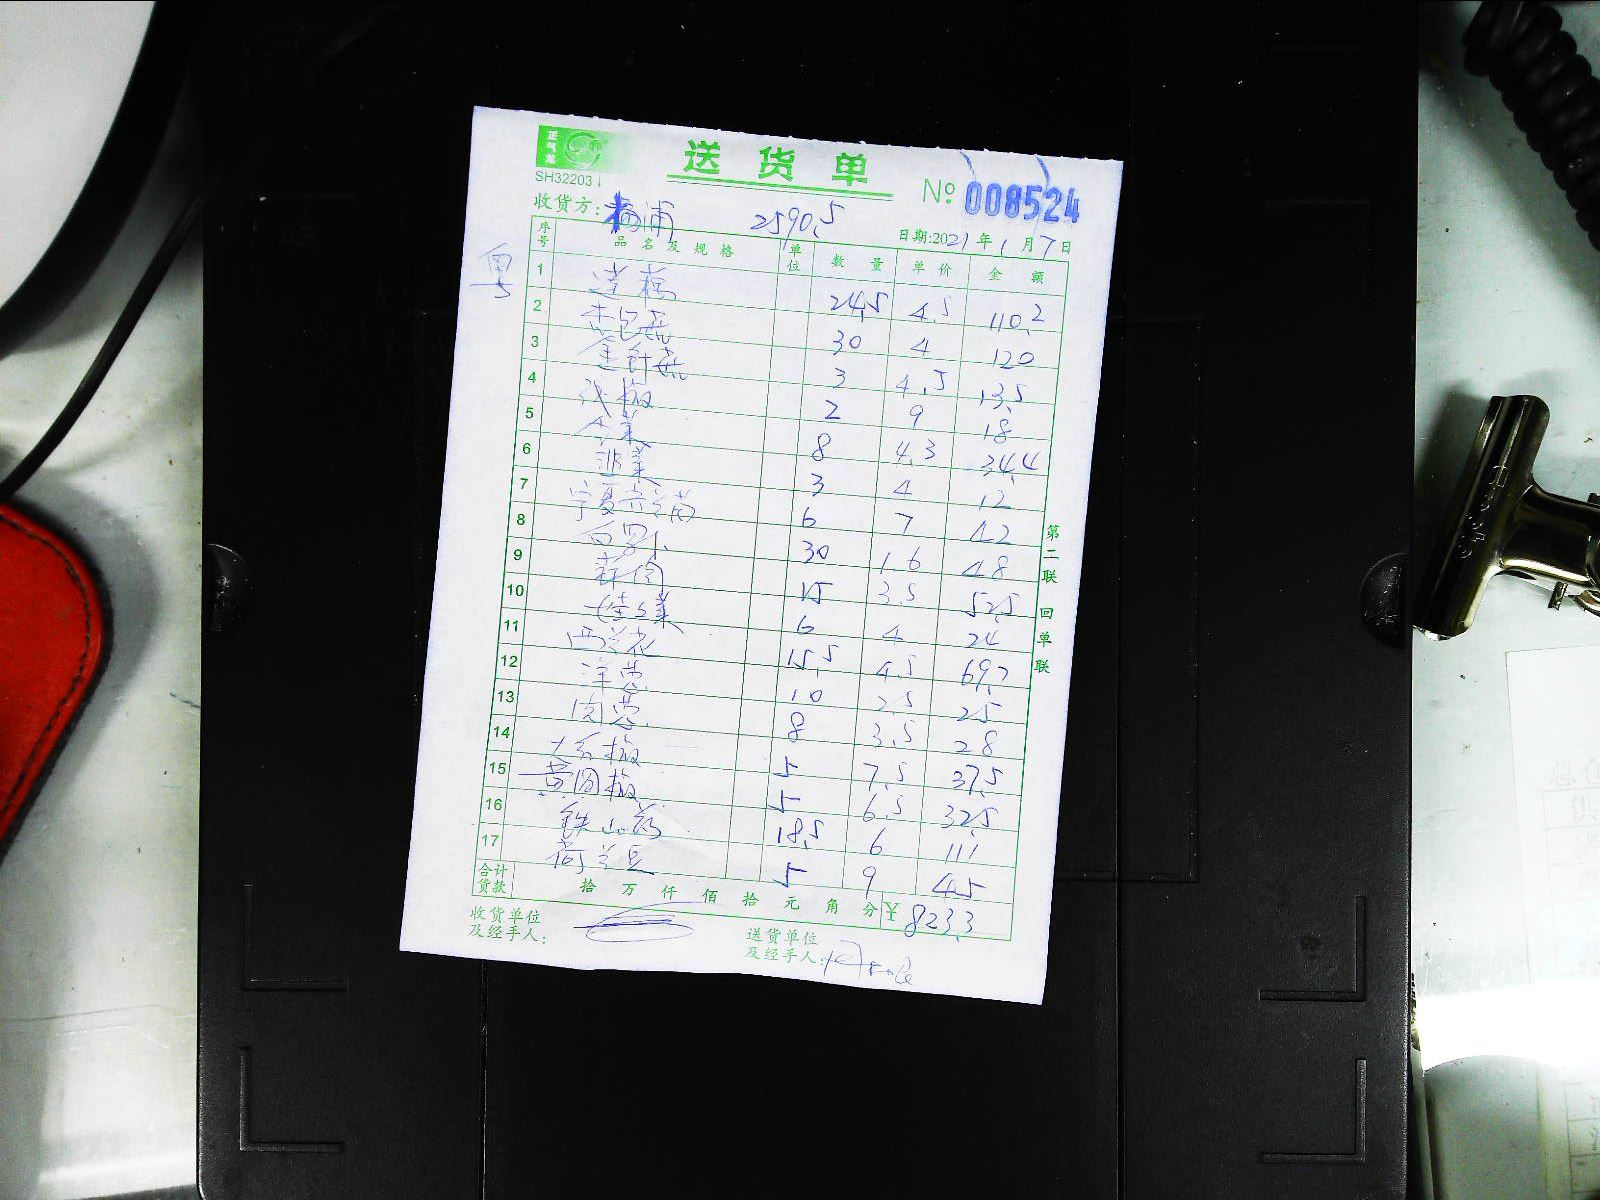 正气龙
送货单
SH32203
№ 008524
收货方: 杨浦 2590.5
日期:2021年1月7日
粤
序号 品名及规格 单位 数量 单价 金额
1 莲藕 24.5 4.5 110.2
2 杏包菇 30 4 120
3 金针菇 3 4.5 13.5
4 线椒 2 9 18
5 8 4.3 34.4
6 3 4 12
7 宁夏芥兰苗 6 7 42
8 白萝卜 30 1.6 48
9 15 3.5 52.5
10 6 4 24
11 西兰花 15.5 4.5 69.7
12 洋葱 10 2.5 25
13 肉葱 8 3.5 28
14 大红椒 5 7.5 37.5
15 黄圆椒 5 6.5 32.5
16 铁山药 18.5 6 111
17 荷兰豆 5 9 45
合计货款 拾 万 仟 佰 拾 元 角 分 ¥ 823.3
收货单位及经手人:
送货单位及经手人:
第二联 回单联